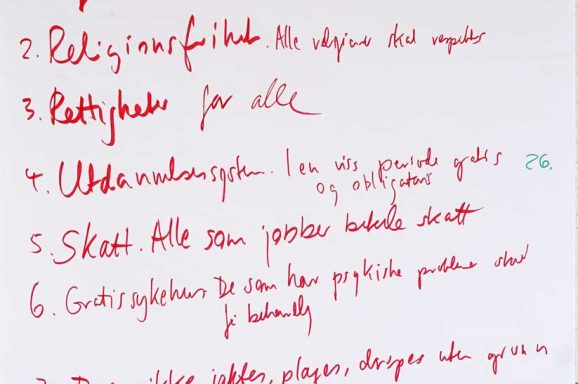 2. Religionsfrihet. Alle religioner skal respekteres
3. Rettigheter for alle
4. Utdannelsessystem. I en viss periode gratis 26.
og obligatorisk
5. Skatt. Alle som jobber betale skatt
6. Gratis sykehus De som har psykiske problemer skal
få behandling
ikke jaktes, plages, drepes uten grunn